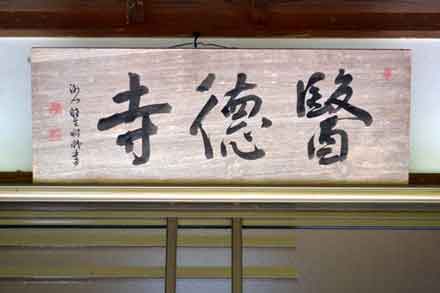 醫德寺